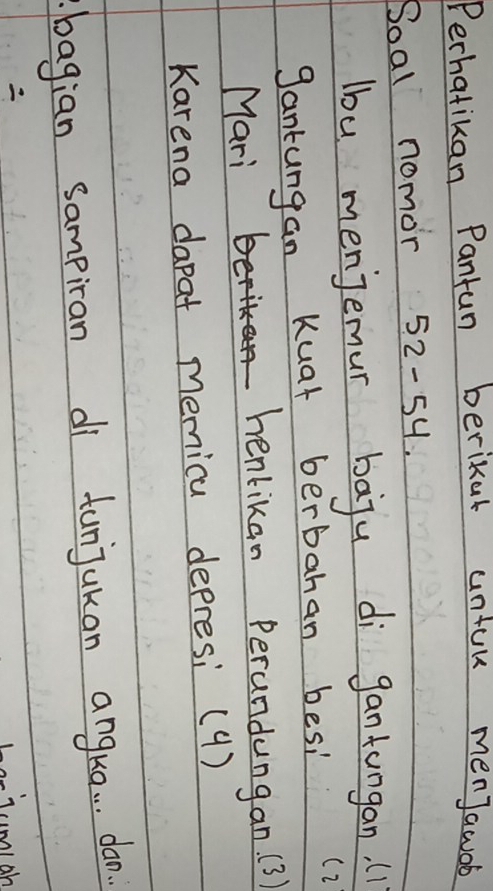 Perhatikan Pantun berikut untuk menjawab
Soal nomor 52-54.
Ibu menjemur baju di gantungan (1)
gantungan kuat berbahan besi (2
Mari berikan hentikan Perundungan (3)
Karena dapat memicu depresi (4)
bagian sampiran di tunjukan angka... dan..